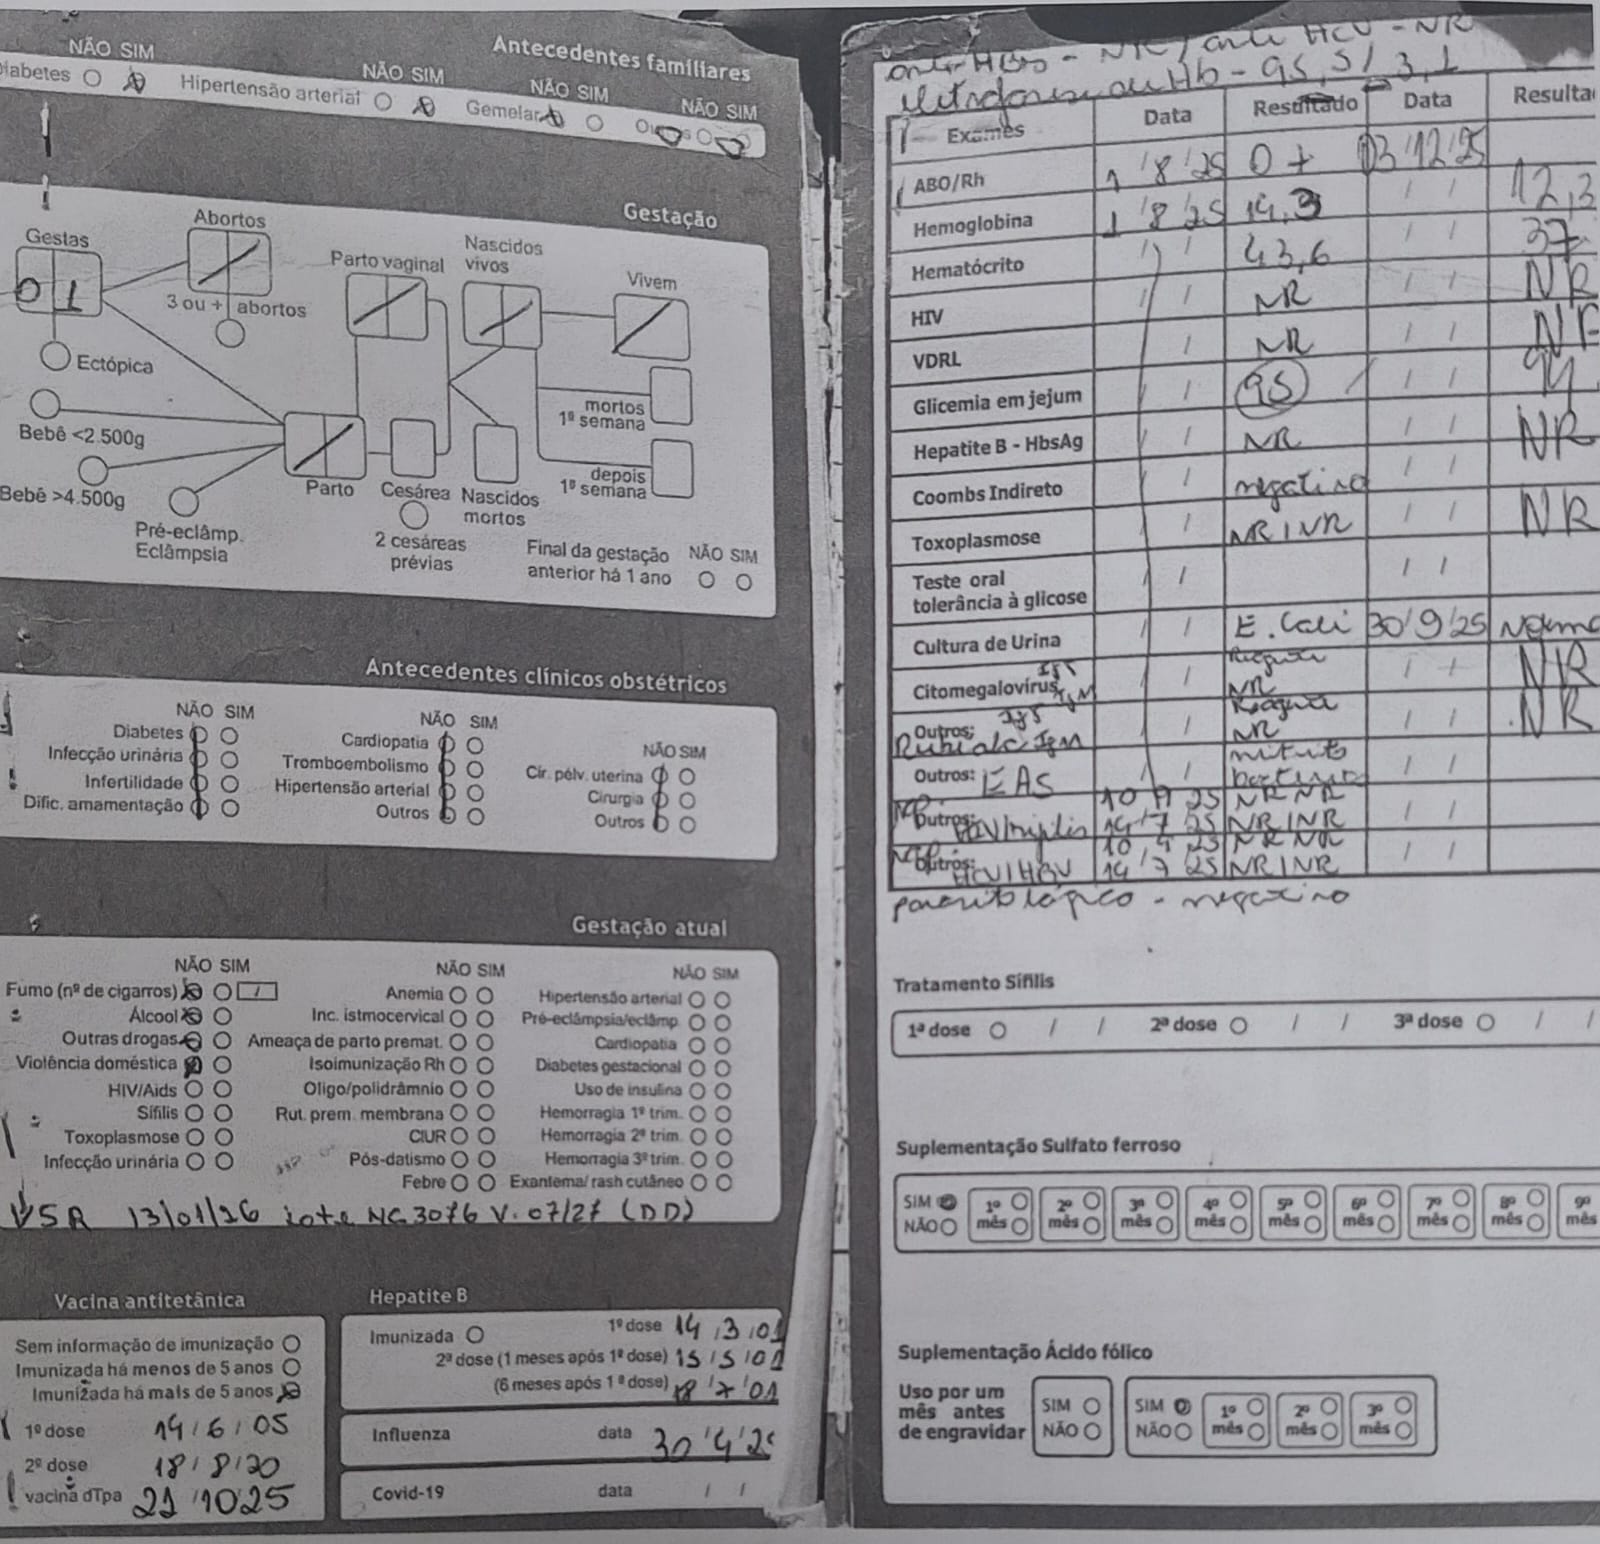 Antecedentes familiares
NÃO SIM
NÃO SIM
NÃO SIM
NÃO SIM
Hipertensão arterial
Gemelar
Gestação
Gestas
0 1
Abortos
3 ou + abortos
Parto vaginal
Nascidos vivos
Vivem
Ectópica
Bebê <2.500g
Bebê >4.500g
Pré-eclâmp.
Eclâmpsia
Parto
Cesárea
2 cesáreas
prévias
Nascidos
mortos
mortos
1ª semana
depois
1ª semana
Final da gestação
anterior há 1 ano
NÃO SIM
Antecedentes clínicos obstétricos
NÃO SIM
Diabetes
Infecção urinária
Infertilidade
Dific. amamentação
NÃO SIM
Cardiopatia
Tromboembolismo
Hipertensão arterial
Outros
NÃO SIM
Cir. pélv. uterina
Cirurgia
Outros
Gestação atual
NÃO SIM
Fumo (nº de cigarros)
Álcool
Outras drogas
Violência doméstica
HIV/Aids
Sífilis
Toxoplasmose
Infecção urinária
NÃO SIM
Anemia
Inc. istmocervical
Ameaça de parto premat.
Isoimunização Rh
Oligo/polidrâmnio
Rut. prem. membrana
CIUR
Pós-datismo
Febre
NÃO SIM
Hipertensão arterial
Pré-eclâmpsia/eclâmp.
Cardiopatia
Diabetes gestacional
Uso de insulina
Hemorragia 1º trim.
Hemorragia 2º trim.
Hemorragia 3º trim.
Exantema/ rash cutâneo
VSR 13/01/26 Lote NG3076 V. 07/27 (DD)
Vacina antitetânica
Sem informação de imunização
Imunizada há menos de 5 anos
Imunizada há mais de 5 anos
1º dose 14/6/05
2º dose 18/8/20
vacina dTpa 21/10/25
Hepatite B
Imunizada
1º dose 14/3/01
2ª dose (1 meses após 1ª dose) 15/5/01
(6 meses após 1ª dose) 18/7/01
Influenza data 30/4/
Covid-19 data / /
anti HBs - NR / anti HCV - NR
Hb - 95,5 / 3,1
Exames Data Resultado Data
ABO/Rh 1/8/25 O+ 03/12/25
Hemoglobina 1/8/25 14,3 12,3
Hematócrito 43,6 37
HIV NR NR
VDRL NR
Glicemia em jejum 95 94
Hepatite B - HbsAg NR NR
Coombs Indireto negativo
Toxoplasmose NR/NR NR
Teste oral
tolerância à glicose
Cultura de Urina E. Coli 30/9/25
Citomegalovírus IgG Reagente NR
IgM NR
Outros: IgG Reagente NR
Rubéola IgM NR
Outros: EAS nitrito
Outros: NR NR
14/7/25 NR/NR
Outros: NR NR
HCV/HBV 14/7/25 NR/NR
parasitológico - negativo
Tratamento Sífilis
1ª dose / / 2ª dose / / 3ª dose / /
Suplementação Sulfato ferroso
SIM 1º 2º 3º 4º 5º 6º 7º 8º 9º
NÃO mês mês mês mês mês mês mês mês mês
Suplementação Ácido fólico
Uso por um
mês antes
de engravidar
SIM
NÃO
SIM 1º 2º 3º
NÃO mês mês mês